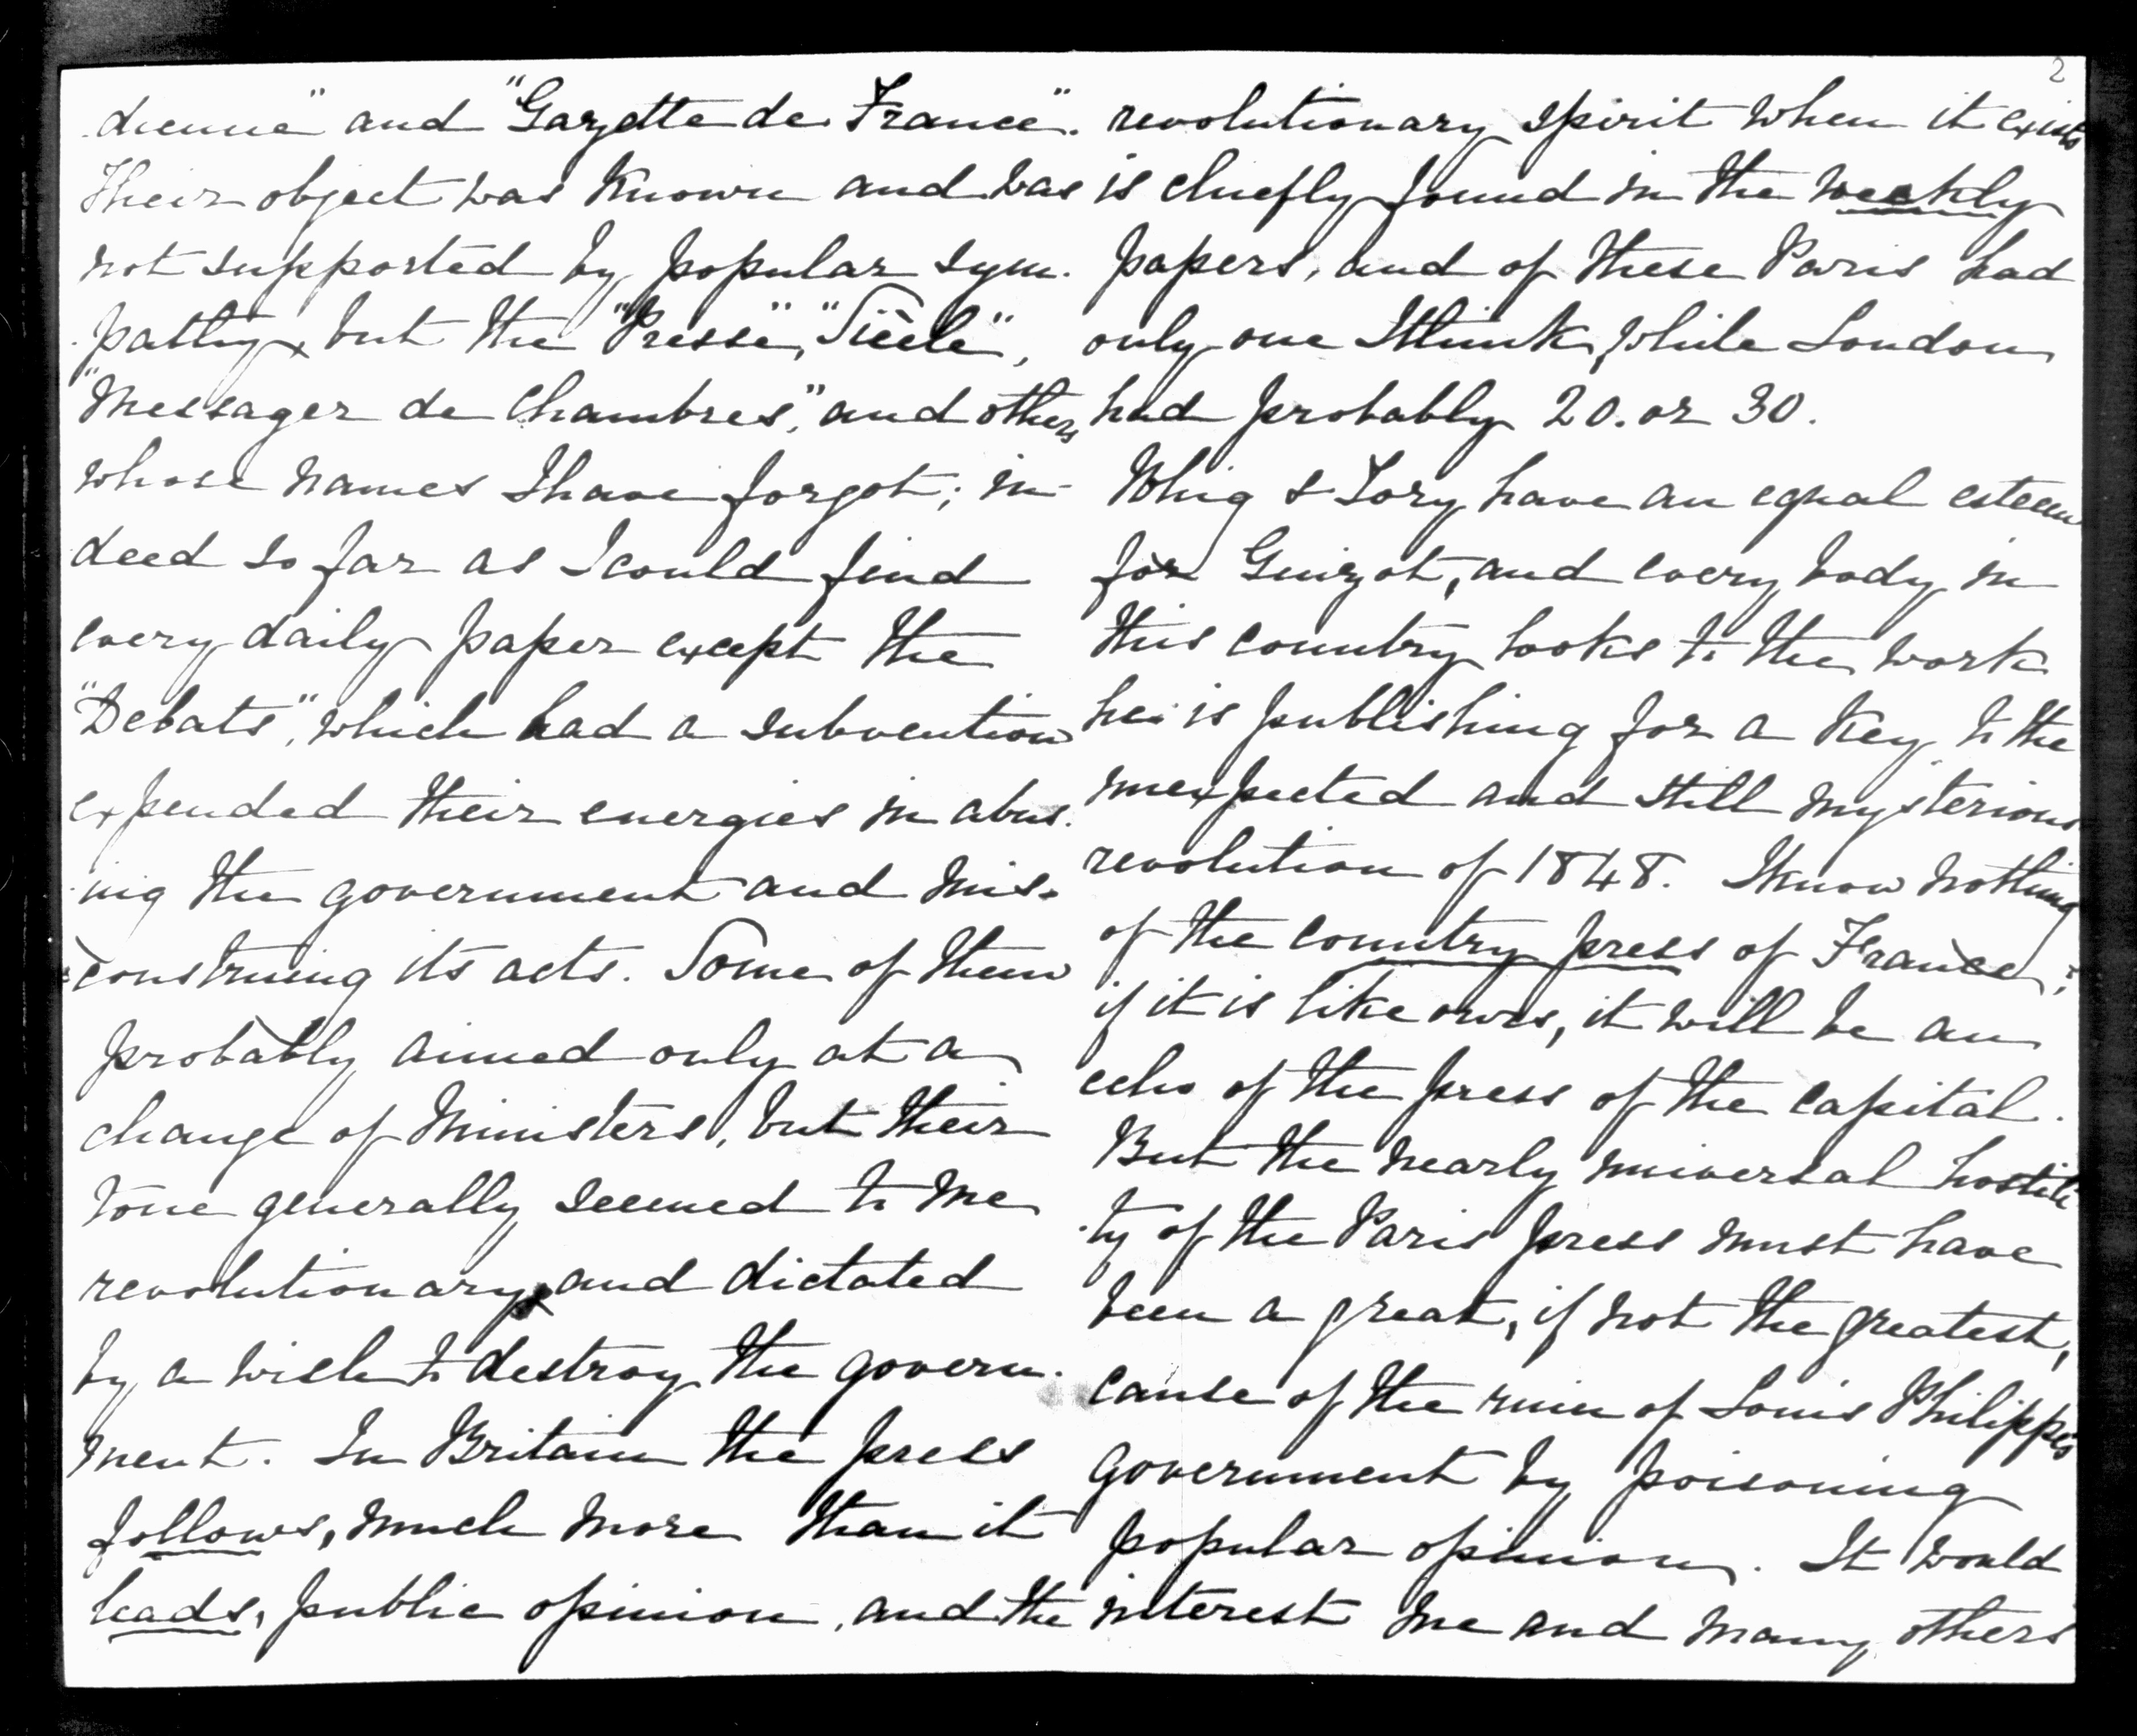 dienne" and "Gazette de France".
Their object was known and was
not supported by popular sym-
-pathy, but the "Presse", "Siècle",
"Messager de Chambres," and others
whose names I have forgot; in-
deed so far as I could find
every daily paper except the
"Debats", which had a subvention
expended their energies in abus-
-ing the government and mis-
-construing its acts. Some of them
probably aimed only at a
change of Ministers, but their
tone generally seemed to me
revolutionary, and dictated
by a wish to destroy the govern-
ment. In Britain the press
follows, much more than it
leads, public opinion, and the
2
revolutionary spirit when it exists
is chiefly found in the weekly
papers, and of these Paris had
only one I think, while London
had probably 20. or 30.
Whig & Tory have an equal esteem
for Guizot, and every body in
this country looks to the work
he is publishing for a key to the
unexpected and still mysterious
revolution of 1848. I know nothing
of the country press of France;
if it is like ours, it will be an
echo of the press of the capital.
But the nearly universal hostili-
-ty of the Paris press must have
been a great, if not the greatest,
cause of the ruin of Louis Philippe's
government by poisoning
popular opinion. It would
interest me and many others